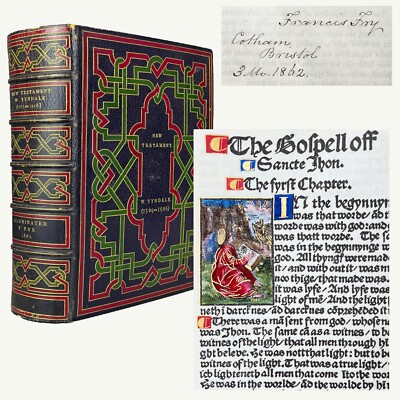 NEW
TESTAMENT
W. TYNDALE
(1525-1526)
NEW TESTAMENT
W. TYNDALE
(1525-1526)
ILLUMINATED
Francis Fry
Cotham,
Bristol
3 Mo. 1862.
The Gospell off
Sancte Jhon.
The fyrst Chapter.
IN the begynnyn
was that worde/ ād t
worde was with god: and
was thatt worde. The sa
was in the begynnynge w
god. All thyngf were made
it/ and with out it/ was m
no thige/ that made was.
it was lyfe/ And lyfe was
light of mē/ And the light
neth i darcknes/ and darcknes cōprehēded it
There was a māsent from god/ whose ne
was Jhon. The same cā as a witnes/ to be
witnes of the light/ that all men through hi
ght beleve. He was nott that light: but to be
witnes of the light. That was a true light/
ich lighteneth all men that come ito the wo
He was in the worlde/ and the worlde by hi